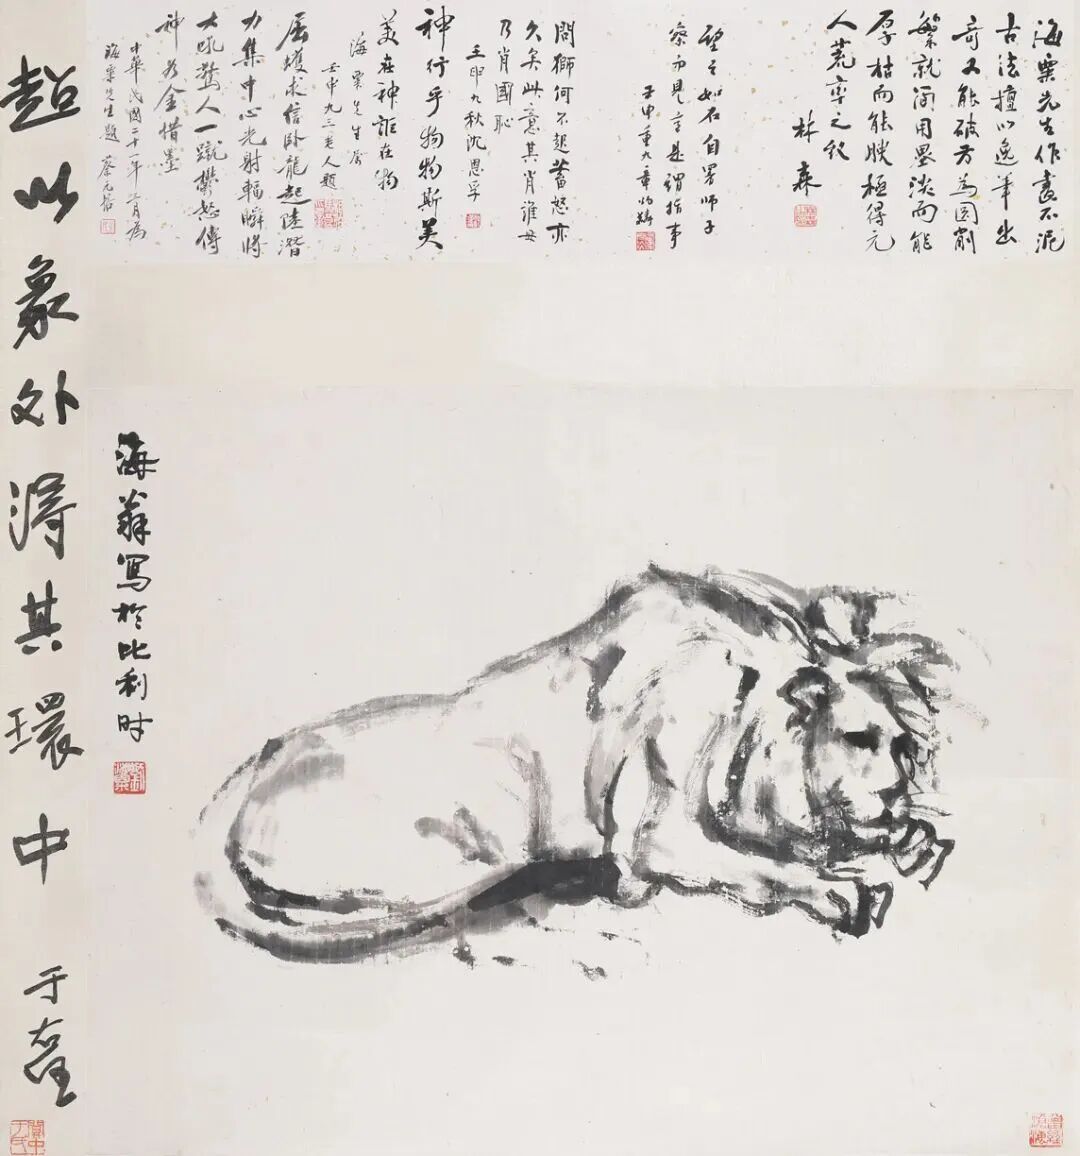 海粟先生作畫不泥
古法擅以逸筆出
奇又能破方為圓削
繁就簡用墨淡而能
厚枯而能腴極得元
人荒率之致
林森
望之如石自署師子
察而見之是謂指事
壬申重九章炳麟
問獅何不起蓄怒亦
久矣此意其肖誰毋
乃肖國恥
壬申九秋沈恩孚
神行乎物物斯美
美在神詎在物
海粟先生屬
壬申九三老人題
屈蠖求信臥龍起陸潛
力集中心光射輻瞬將
大吼驚人一蹴鬱怒傳
神為金惜墨
中華民國二十一年十月為
海粟先生題 蔡元培
超以象外得其環中
于右任
海翁寫於比利时
關中于氏